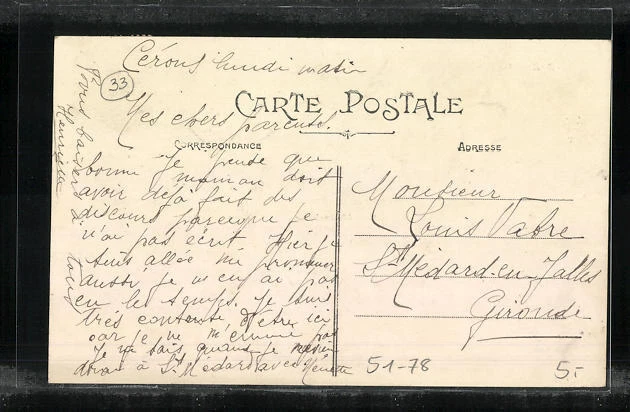 Cérons lundi matin
33
Mes chers parents.
CARTE POSTALE
CORRESPONDANCE
ADRESSE
Je pense que
bonne maman doit
avoir déjà fait des
discours parceque je
n'ai pas écrit Hier je
suis allée me promener
aussi je n'en ai pas
eu le temps. Je suis
très contente d'être ici
car je ne m'ennuie pas
Je ne sais quand je
à St Médard avec
Bons baisers à
tous
Henriette
Monsieur
Louis Fabre
St Médard-en-Jalles
Gironde
51-78
5.-